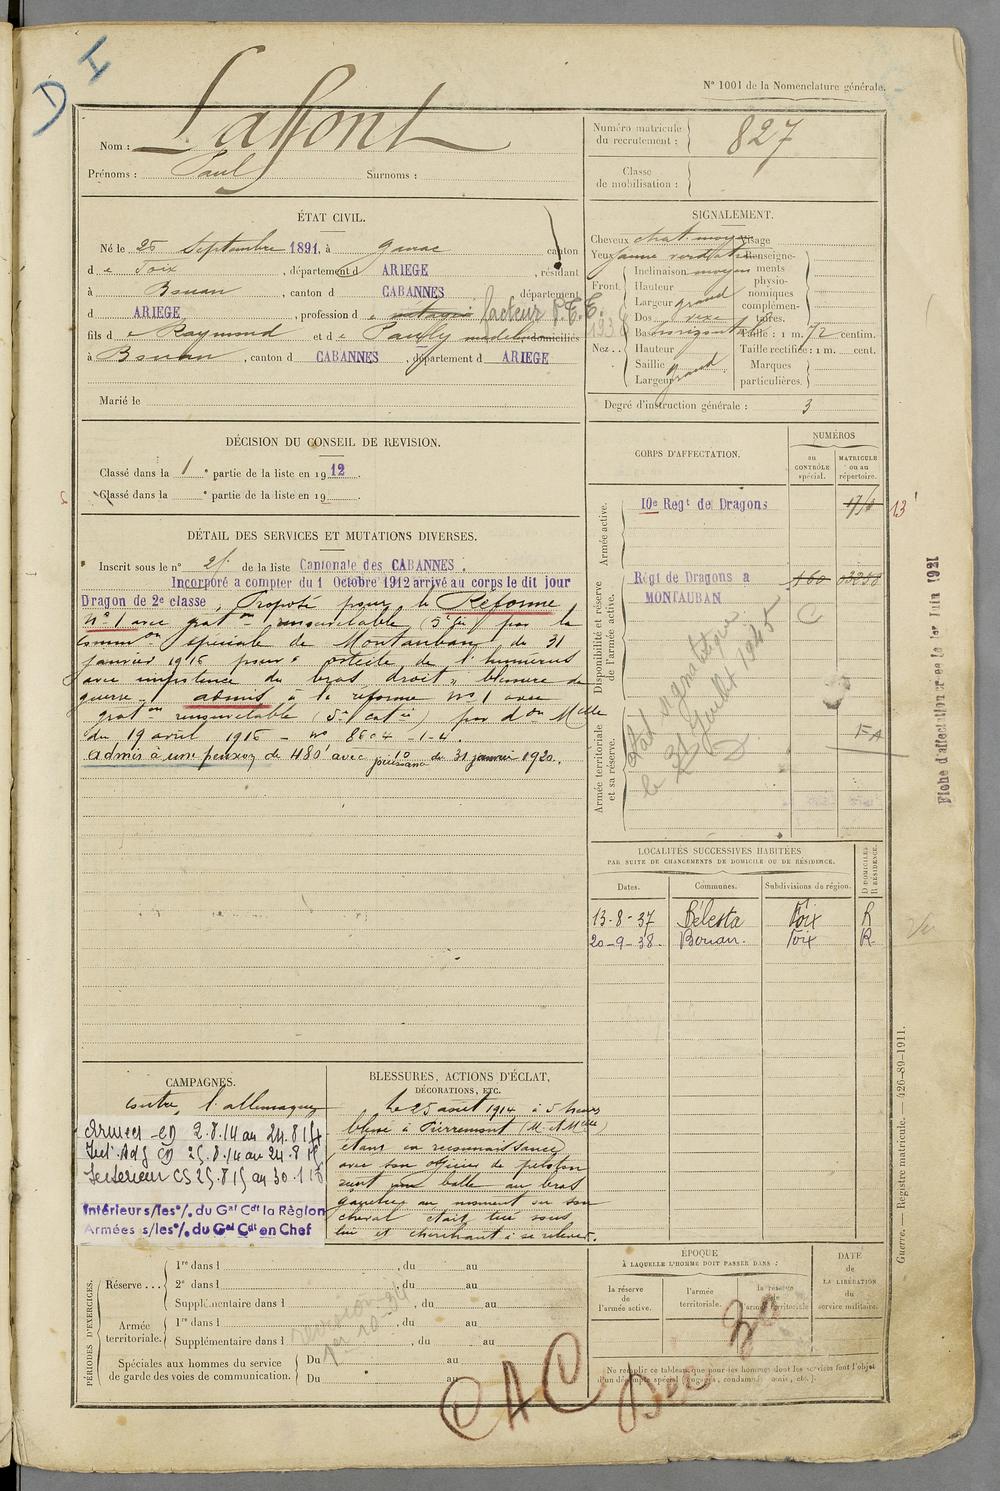 D I
N° 1001 de la Nomenclature générale.
Nom : Lafont
Prénoms : Paul Surnoms :
Numéro matricule du recrutement : 827
Classe de mobilisation :
ÉTAT CIVIL.
Né le 25 Septembre 1891, à Ganac canton
d e Foix, département d ARIEGE, résidant
à Bouan, canton d CABANNES département
d ARIEGE, profession d e facteur P.T.E.
fils d e Raymond et d e Pauly madeleine domiciliés
à Bouan, canton d CABANNES, département d ARIEGE
Marié le
SIGNALEMENT.
Cheveux chat. moyen Visage
Yeux jaune verdatre Renseigne-
Front. Inclinaison moyen ments
Hauteur physio-
Largeur grand nomiques
complémen-
Nez .. Dos vexe taires.
Base horizontale Taille : 1 m. 72 centim.
Hauteur Taille rectifiée : 1 m. cent.
Saillie Marques
Largeur grand particulières.
Degré d'instruction générale : 3
DÉCISION DU CONSEIL DE REVISION.
Classé dans la 1 e partie de la liste en 1912.
Classé dans la e partie de la liste en 19 .
CORPS D'AFFECTATION.
NUMÉROS
au CONTRÔLE spécial.
MATRICULE ou au répertoire.
Armée active.
10e Regt de Dragons
13
Disponibilité et réserve de l'armée active.
Régt de Dragons a 160 03258
MONTAUBAN
C
Armée territoriale et sa réserve.
le 31 Juillet 1945
FA
Fiche d'affectation créée le 1er Juin 1921
DÉTAIL DES SERVICES ET MUTATIONS DIVERSES.
Inscrit sous le n° 25 de la liste Cantonale des CABANNES.
Incorporé a compter du 1 Octobre 1912 arrivé au corps le dit jour
Dragon de 2e classe, Proposé pour la Réforme
n° 1 avec grat on renouvelable (5e ) par la
Comm on spéciale de Montauban du 31
janvier 1916 pour " ostéite de l'humérus
avec impotence du bras droit " blessure de
guerre, admis à la réforme n° 1 avec
grat on renouvelable (5e cat ie) par d on M elle
du 19 avril 1916 - n° 8604-1-4.
Admis à une pension de 480f avec jouissance du 31 janvier 1920.
LOCALITÉS SUCCESSIVES HABITÉES
PAR SUITE DE CHANGEMENTS DE DOMICILE OU DE RÉSIDENCE.
Dates. Communes. Subdivisions de région. D DOMICILE. R RÉSIDENCE.
13-8-37 Bélesta Foix R
20-9-38. Bouan. Foix R.
CAMPAGNES.
Contre l'allemagne
Armées CD 2.8.14 au 24.8.14
Int. Adj CD 25.8.14 au 24.8.15
Intérieur CS 25.8.15 au 30.1.16
Intérieur s/les °/. du Gal Cdt la Région
Armées s/les °/. du Gal Cdt en Chef
BLESSURES, ACTIONS D'ÉCLAT,
DÉCORATIONS, ETC.
Le 25 août 1914 à 5 heures
blessé à Pierremont (M-et-Mlle)
étant en reconnaissance
avec son officier de peloton
reçut une balle au bras
gauche au moment où son
cheval était tué sous
lui et cherchant à se relever.
PÉRIODES D'EXERCICES.
Réserve ...
1re dans l , du au
2e dans l , du au
Supplémentaire dans l , du au
Armée territoriale.
1re dans l , du au
Supplémentaire dans l , du au
Spéciales aux hommes du service
de garde des voies de communication.
Du au
Du au
ÉPOQUE
À LAQUELLE L'HOMME DOIT PASSER DANS :
la réserve de l'armée active.
l'armée territoriale.
la réserve de l'armée territoriale
DATE de LA LIBÉRATION du service militaire.
Ne remplir ce tableau que pour les hommes dont les services font l'objet
d'un décompte spécial (engagés, condamnés, omis, etc.).
CAC
Guerre. — Registre matricule. — 426-89-1911.